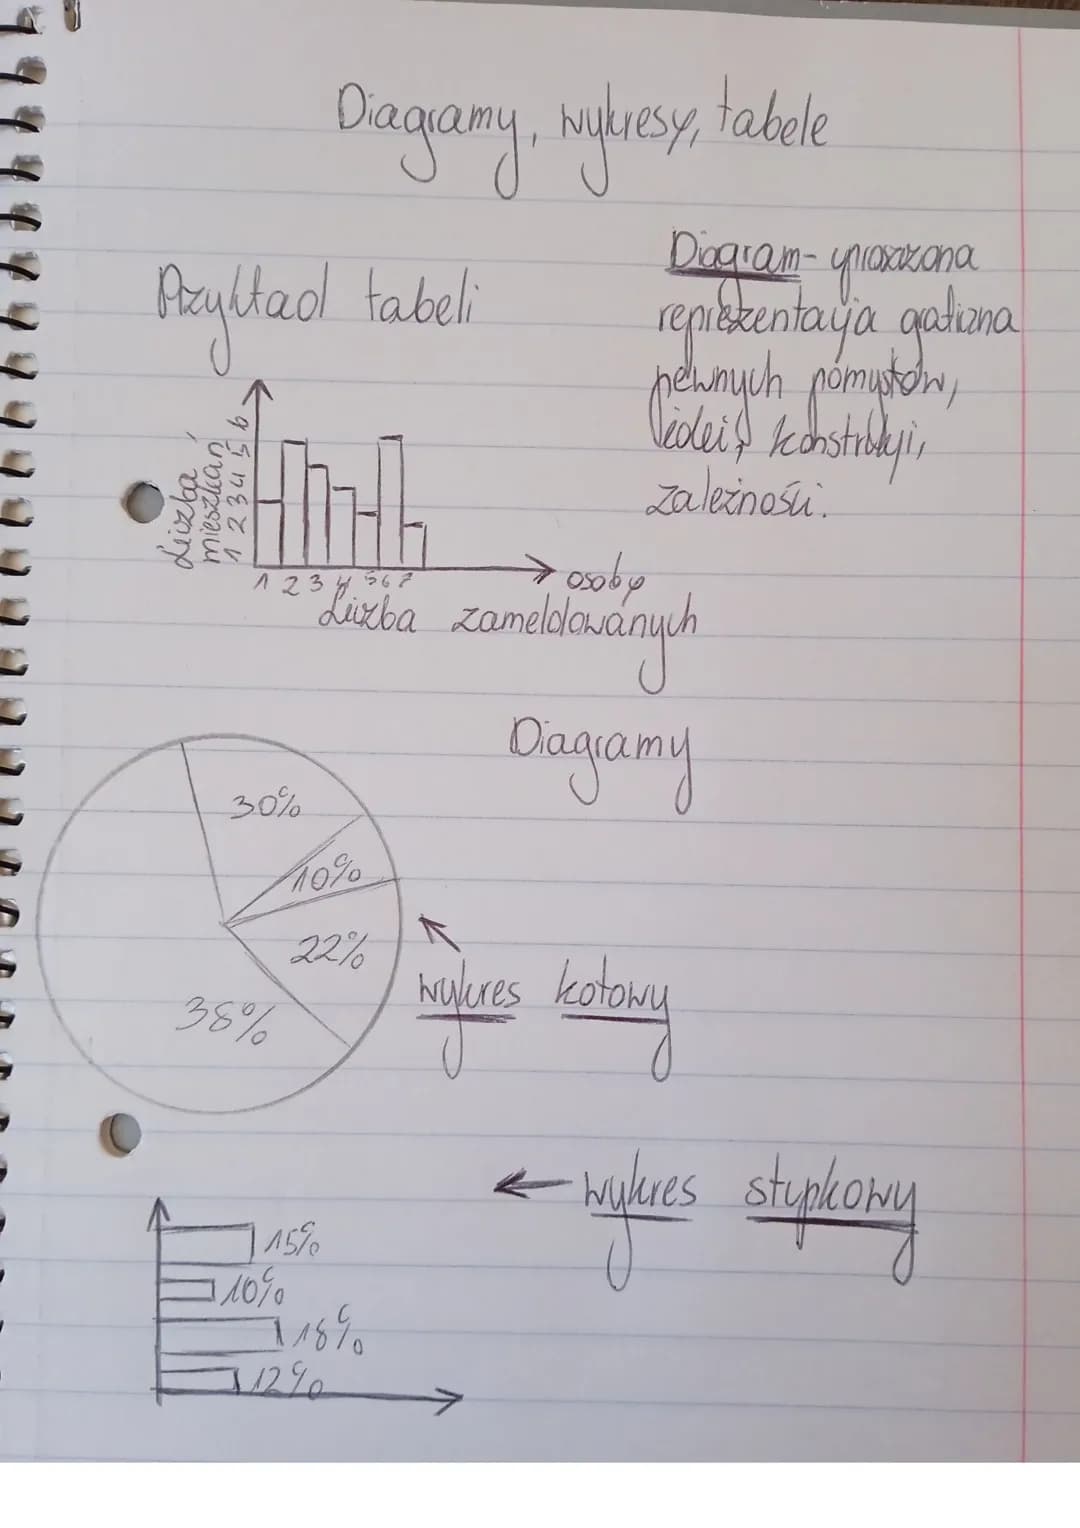 Diagramy, wykresy, tabele
Diagram - uproszczona
reprezentacja graficzna
pewnych pomysłów,
idei, konstrukcji,
zależności.
Przykład tabeli
Liczba
mieszkań
1 2 3 4 5 6
1 2 3 4 5 6 7
osoby
Liczba zameldowanych
Diagramy
30%
10%
22%
38%
wykres kołowy
wykres słupkowy
15%
10%
18%
12%